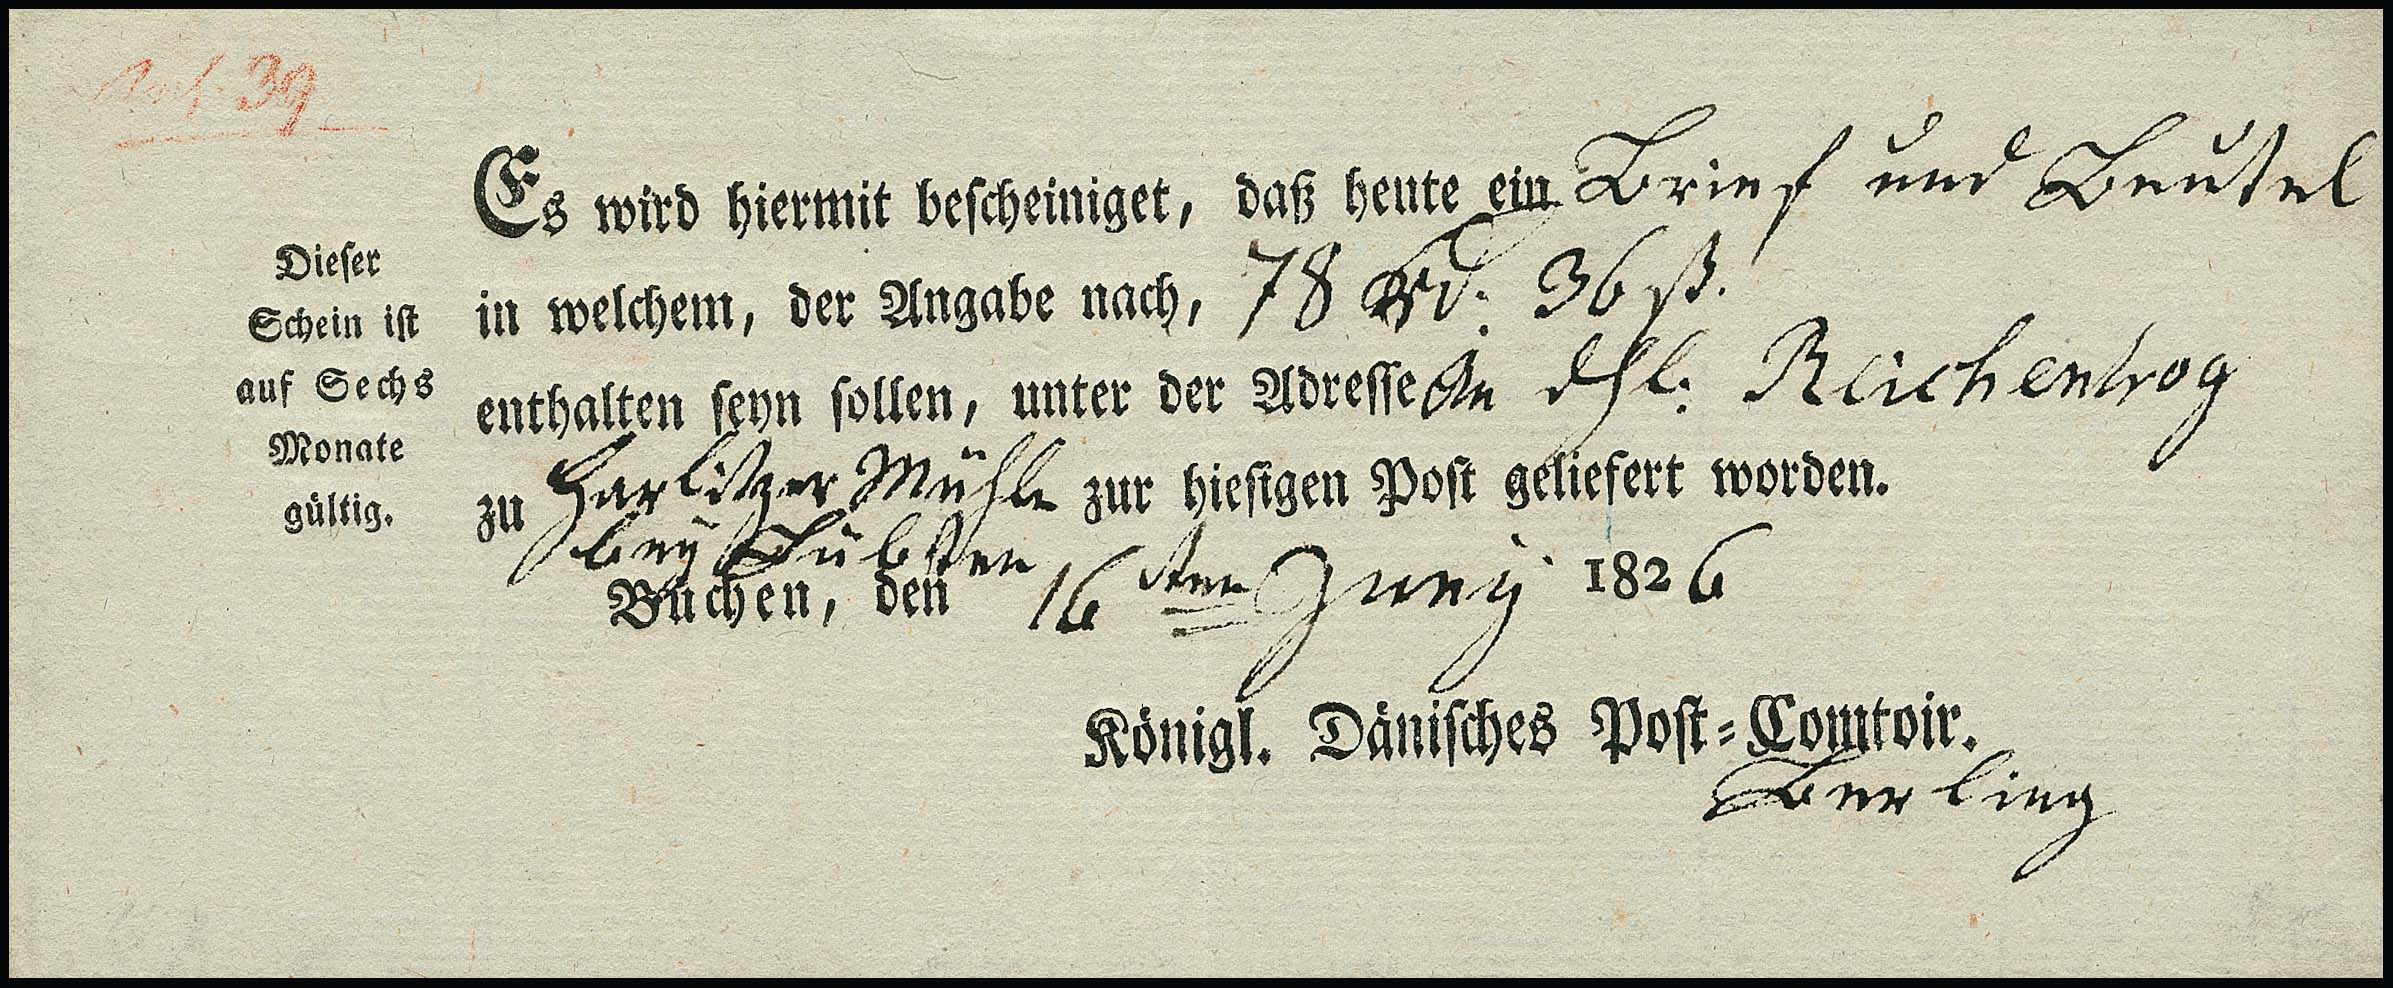 39
Es wird hiermit bescheiniget, daß heute ein Brief und Beutel
in welchem, der Angabe nach, 78 36 ß.
enthalten seyn sollen, unter der Adresse An Reichentrog
zu Harlitzer Mühle zur hiesigen Post geliefert worden.
bey
Büchen, den 16ten Juny 1826
Königl. Dänisches Post-Comtoir.
Berling
Dieser
Schein ist
auf Sechs
Monate
gültig.